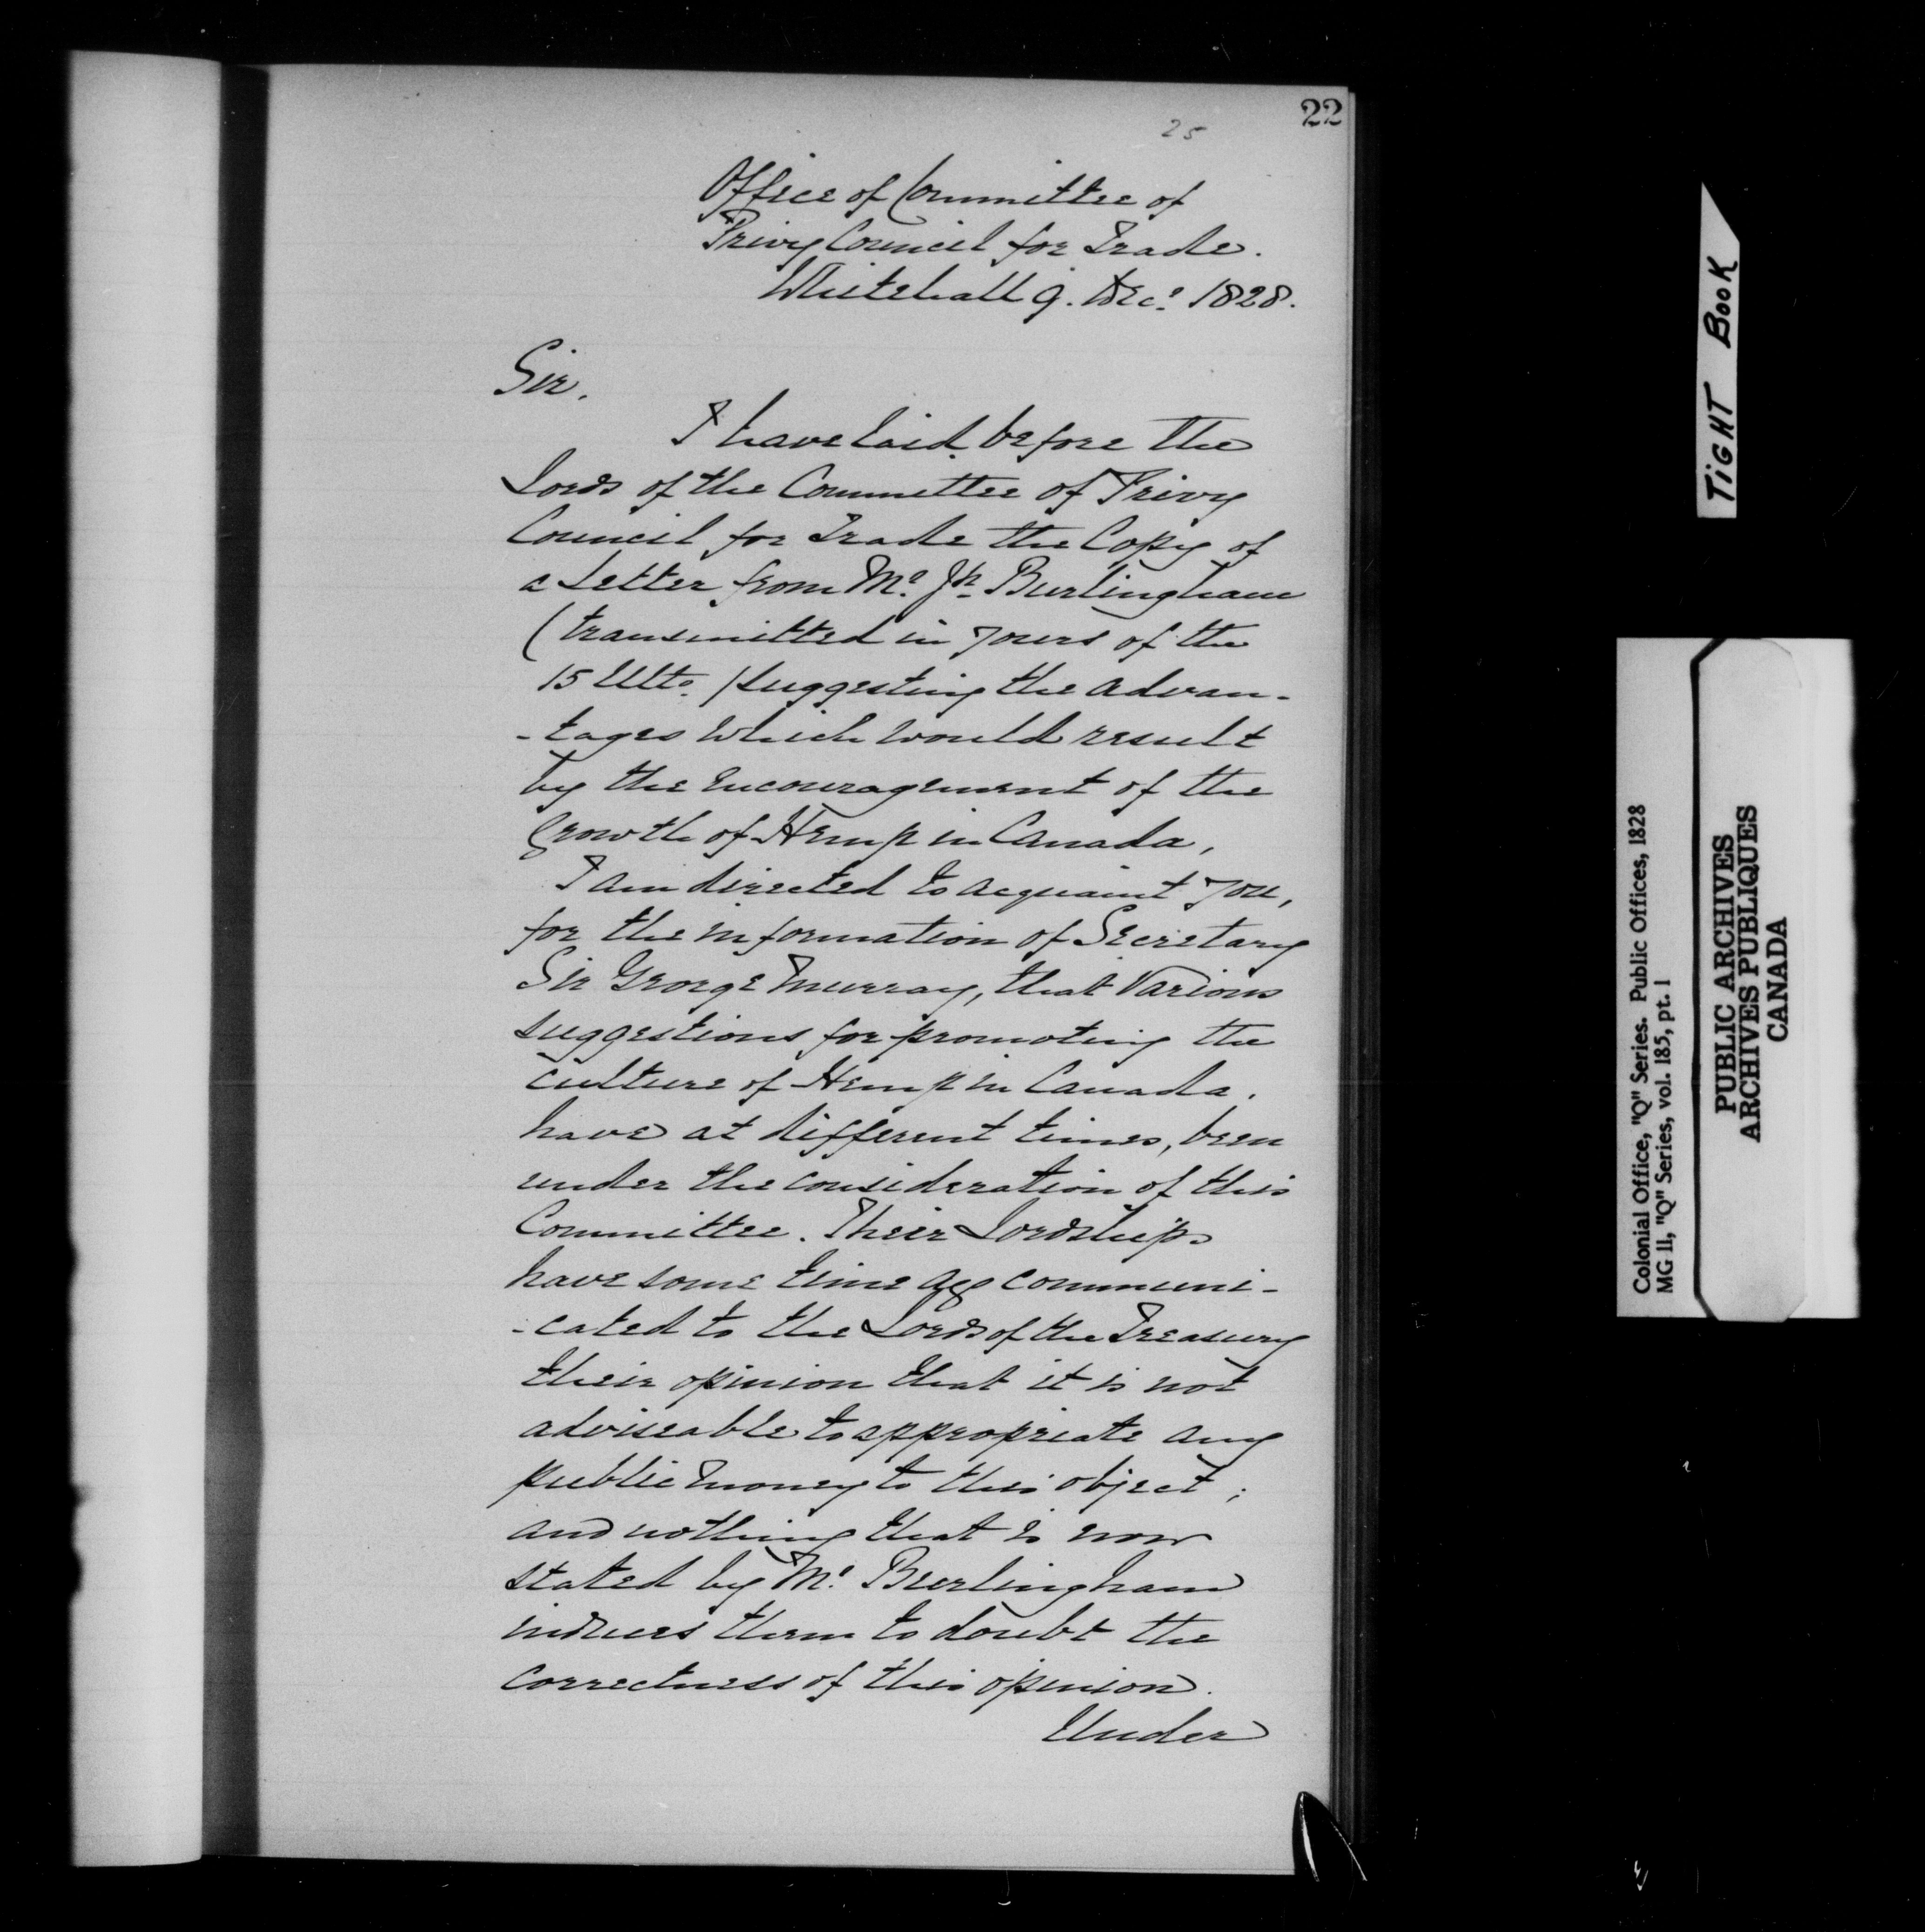 22
25
Office of Committee of
Privy Council for Trade.
Whitehall 9. Decr. 1828.
Sir,
I have laid before the
Lords of the Committee of Privy
Council for Trade the Copy of
a Letter from Mr. Jn. Burlingham
(transmitted in yours of the
15 Ulto.) suggesting the advan-
-tages which would result
by the encouragement of the
Growth of Hemp in Canada,
I am directed to acquaint you,
for the information of Secretary
Sir George Murray, that various
suggestions for promoting the
culture of Hemp in Canada,
have at different times, been
under the consideration of this
Committee. Their Lordships
have some time ago communi-
-cated to the Lords of the Treasury
their opinion that it is not
adviseable to appropriate any
public money to this object;
and nothing that is now
stated by Mr. Burlingham
induces them to doubt the
correctness of this opinion.
Under
TIGHT BOOK
Colonial Office, "Q" Series. Public Offices, 1828
MG 11, "Q" Series, vol. 185, pt. 1
PUBLIC ARCHIVES
ARCHIVES PUBLIQUES
CANADA